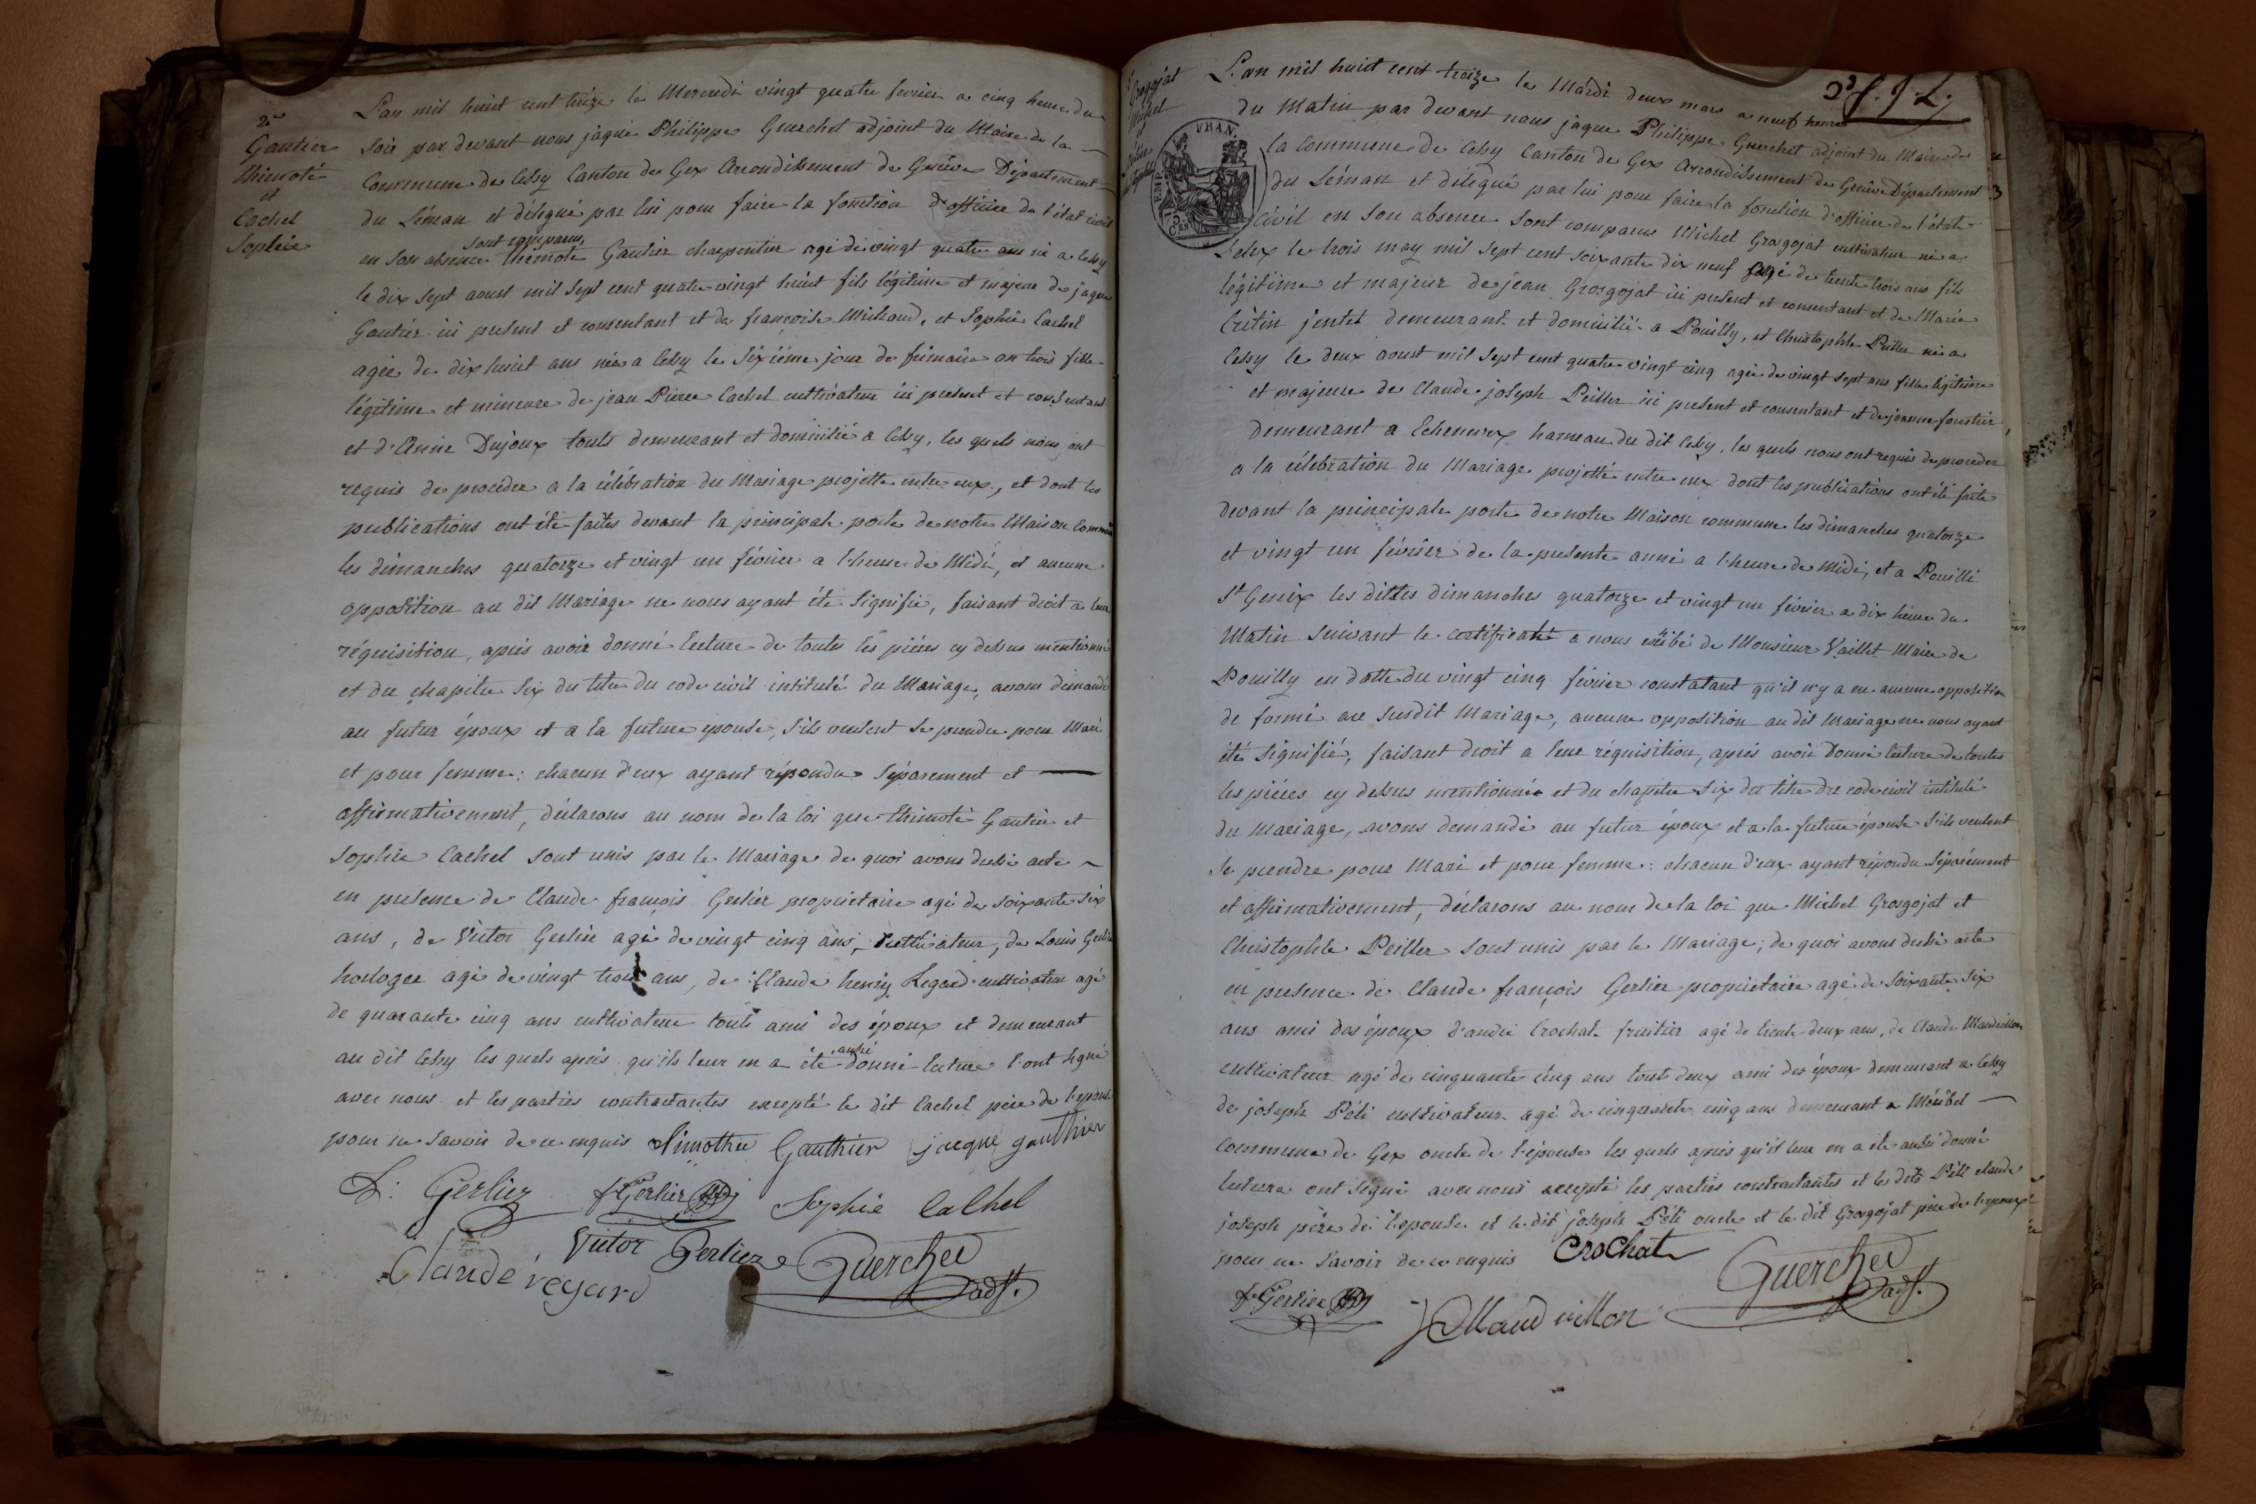 2e
Gautier
thimoté
et
Cachet
Sophie
L'an mil huit cent treize le Mercredi vingt quatre fevrier a cinq heure du
soir par devant nous jaque Philippe Guerchet adjoint du Maire de la
Commune de Cessy Canton de Gex Arrondissement de Genève Département
du Léman et délegué par lui pour faire la fonction d'officier de l'état civil
sont comparus
en son absence thimoté Gautier charpentier agé de vingt quatre ans né a Cessy
le dix sept aoust mil sept cent quatre vingt huit fils légitime et majeur de jaque
Gautier ici present et consentant et de francoise Michaud, et Sophie Cachet
agée de dix huit ans née a Cessy le Sixième jour de frimaire an trois fille
légitime et mineure de jean Pierre Cachet cultivateur ici present et consentant
et d'Anne Dujoux touts demeurant et domicilié a Cessy, les quels nous ont
requis de procéder a la célébration du Mariage projetté entre eux, et dont les
publications ont été faites devant la principale porte de notre Maison Commune
les dimanches quatorze et vingt un février a l'heure de Midi, et aucune
opposition au dit Mariage ne nous ayant été Signifié, faisant droit a leur
réquisition, après avoir donné lecture de toutes les pièces cy dessus mentionné
et du chapitre Six du titre du code civil intitulé du Mariage, avons demandé
au futur époux et a la future epouse, s'ils veulent se prendre pour Mari
et pour femme: chacun d'eux ayant répondu Séparement et
affirmativement, déclarons au nom de la loi que thimoté Gautier et
Sophie Cachet sont unis par le Mariage de quoi avons dressé acte
en presence de Claude françois Gerlier propriétaire agé de soixante six
ans, de Victor Gerlier agé de vingt cinq ans, cultivateur, de Louis Gerlier
horloger agé de vingt trois ans, de Claude henry Regard cultivateur agé
de quarante cinq ans cultivateur touts amis des époux et demeurant
aussi
au dit Cessy les quels après qu'ils leur en a été donné lecture l'ont signé
avec nous et les parties contractantes excepté le dit Cachet père de l'epouse
pour ne savoir de ce enquis Timothee Gauthier jacque gauthier
L: Gerlier f Gerlier Sophie Cachet
Victor Gerlier Guerchet
Claude regard adjt.
Grosgojat
Michel
L'an mil huit cent treize le Mardi deux mars a neuf heures
du Matin par devant nous jaque Philippe Guerchet adjoint du Maire de
la Commune de Cessy Canton de Gex Arrondissement de Genève Département
du Léman et délegué par lui pour faire la fonction d'officier de l'état
FRAN.
civil en son absence sont comparus Michel Grosgojat cultivateur né a
le trois may mil sept cent soixante dix neuf agé de trente trois ans fils
légitime et majeur de jean Grosgojat ici present et consentant et de Marie
demeurant et domicilié a Pouilly, et Christophle Peiller née a
Cessy le deux aoust mil sept cent quatre vingt cinq agée de vingt sept ans fille légitime
et majeure de Claude joseph Peiller ici present et consentant et de jeanne
demeurant a Echenevex hameau du dit Cessy, les quels nous ont requis de proceder
a la célébration du Mariage projetté entre eux dont les publications ont été faite
devant la principale porte de notre Maison commune les dimanches quatorze
et vingt un février de la presente anné a l'heure de Midi, et a Pouilli
St Genix les dittes dimanches quatorze et vingt un février a dix heure du
Matin suivant le certificat a nous exibé de Monsieur Vaillet Maire de
Pouilly en datte du vingt cinq février constatant qu'il n'y a eu aucune opposition
de formé au susdit Mariage, aucune opposition au dit Mariage ne nous ayant
été Signifié, faisant droit a leur réquisition, après avoir Donné lecture de toutes
les pièces cy dessus mentionnée et du chapitre Six du titre du code civil intitulé
du Mariage, avons demandé au futur époux et a la future épouse s'ils veulent
Se prendre pour Mari et pour femme: chacun d'eux ayant répondu Séparément
et affirmativement, déclarons au nom de la loi que Michel Grosgojat et
Christophle Peiller sont unis par le Mariage; de quoi avons dressé acte
en presence de Claude françois Gerlier propriétaire agé de soixante six
ans ami des époux d'andré Crochat fruitier agé de trente deux ans, de Claude Mandrillon
cultivateur agé de cinquante cinq ans tout deux ami des époux demeurant a Cessy
de joseph Péli cultivateur agé de cinquante cinq ans demeurant a Méribel
Commune de Gex oncle de l'épouse les quels après qu'il leur en a été aussi donné
lecture ont signé avec nous excepté les parties contractantes et les dits Péli claude
joseph père de l'epouse et le dit joseph Péli oncle et le dit Grosgojat père de l'epoux
pour ne savoir de ce enquis Crochat
Guerchet
adjt.
f Gerlier J Mandrillon